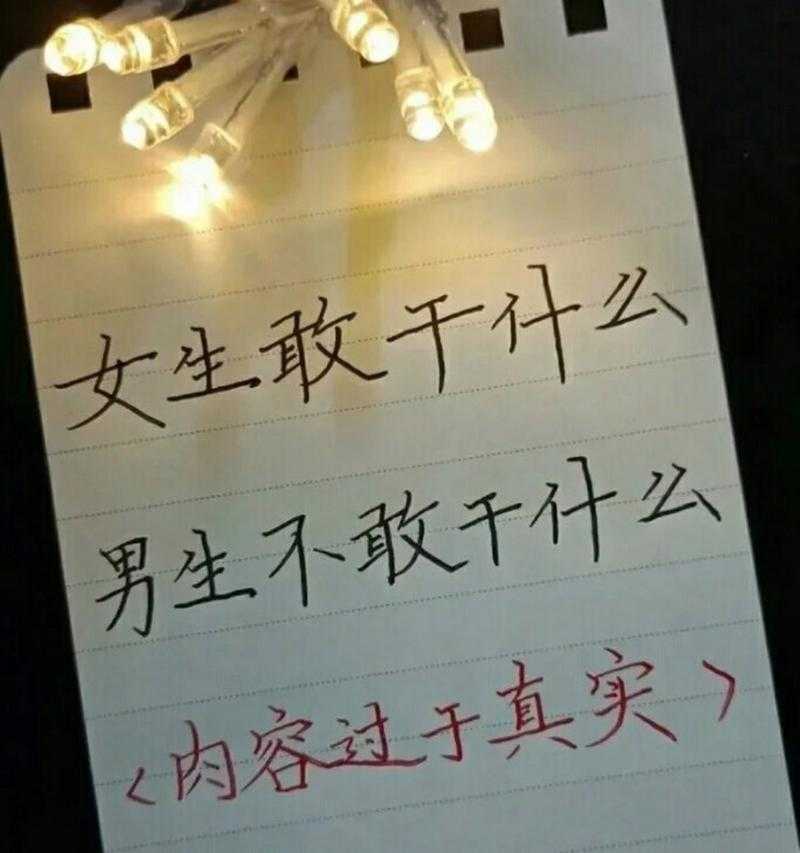 女生敢干什么
男生不敢干什么
<内容过于真实>